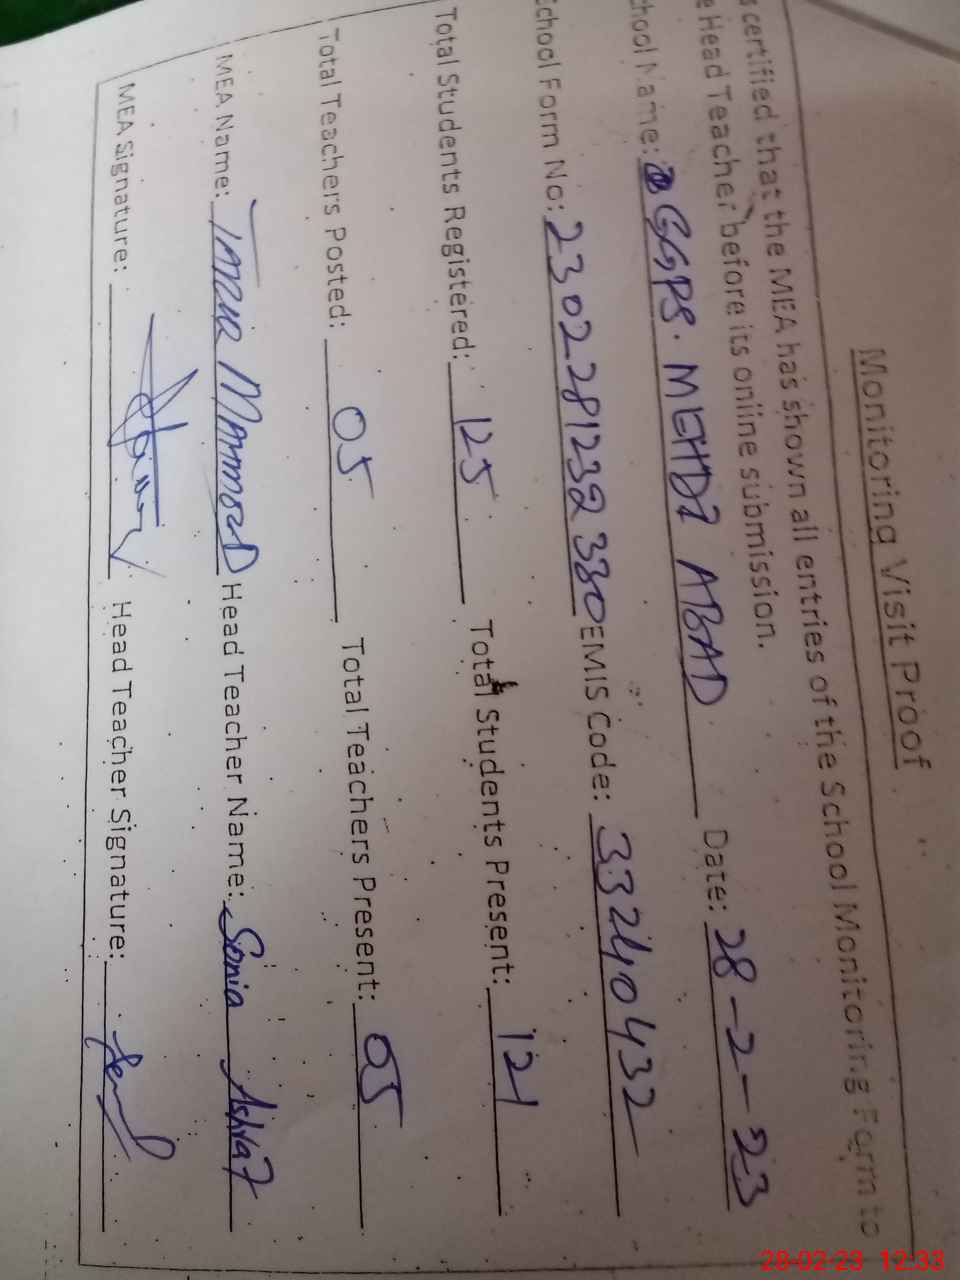 Monitoring Visit Proof
s certified that the MEA has shown all entries of the School Monitoring Form to
e Head Teacher before its online submission.
chool Name: GGPS. MEHDI ABAD Date: 28-2-23
chool Form No: 2302281232330 EMIS Code: 33240432
Total Students Registered: 125 Total Students Present: 121
Total Teachers Posted: 05 Total Teachers Present: 05
MEA Name: Head Teacher Name: Sonia Ashraf
MEA Signature: Head Teacher Signature:
28-02-23 12:33